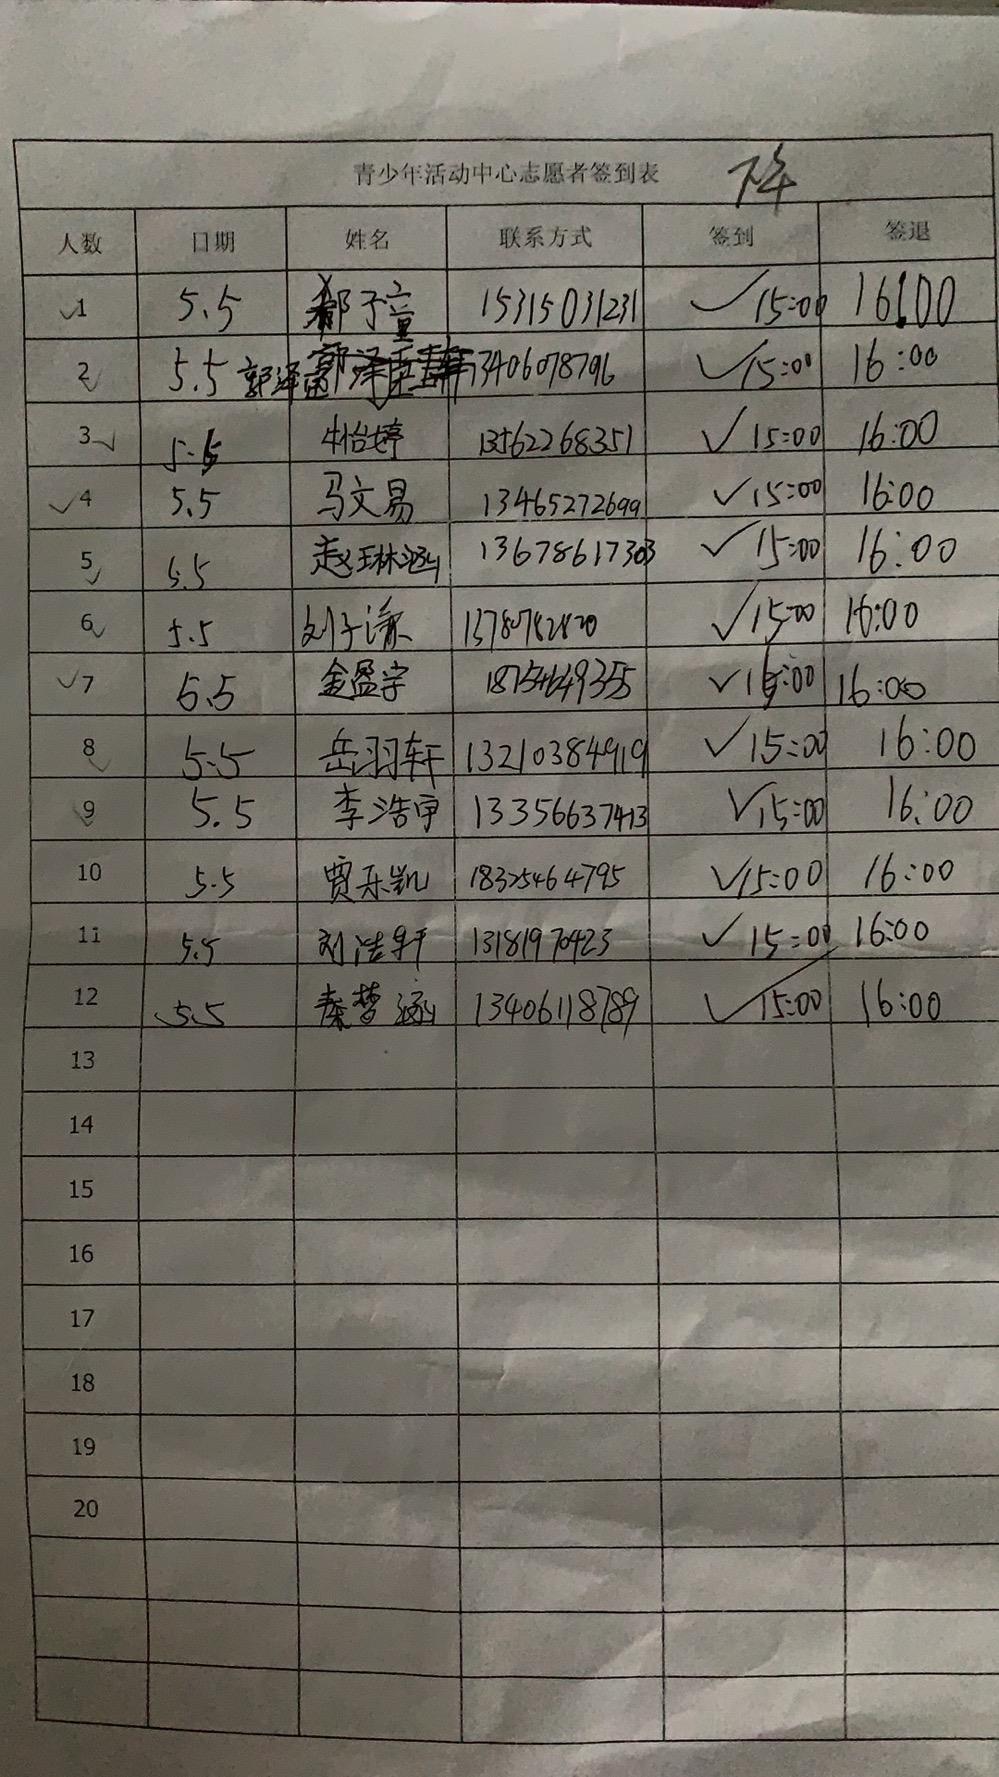 青少年活动中心志愿者签到表 下午
人数 日期 姓名 联系方式 签到 签退
✓1 5.5 郝子童 15315031231 ✓15:00 16:00
2✓ 5.5 郭泽 13406078796 ✓15:00 16:00
3✓ 5.5 牛怡婷 13562268351 ✓15:00 16:00
✓4 5.5 马文易 13465272699 ✓15:00 16:00
5✓ 5.5 赵琳涵 13678617303 ✓15:00 16:00
6✓ 5.5 刘子涵 ✓15:00 16:00
✓7 5.5 金盈宇 18754649355 ✓15:00 16:00
8✓ 5.5 岳羽轩 13210384919 ✓15:00 16:00
9✓ 5.5 李浩宇 13356637413 ✓15:00 16:00
10 5.5 贾乐凯 18325464795 ✓15:00 16:00
11 5.5 刘浩轩 13181970423 ✓15:00 16:00
12 5.5 秦梦涵 13406118789 ✓15:00 16:00
13
14
15
16
17
18
19
20